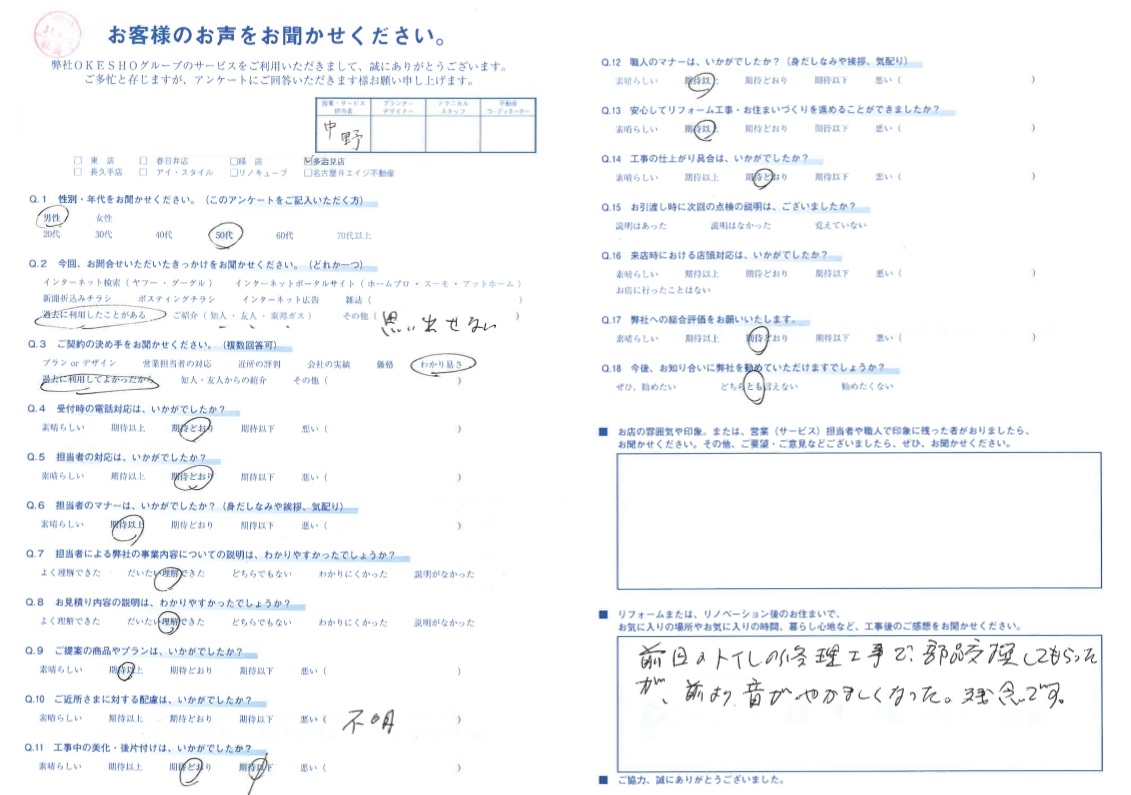 お客様のお声をお聞かせください。
弊社OKESHOグループのサービスをご利用いただきまして、誠にありがとうございます。
ご多忙と存じますが、アンケートにご回答いただきます様お願い申し上げます。
営業・サービス担当者 プランナーデザイナー テクニカルスタッフ 不動産コーディネーター
中野
□ 東 店 □ 春日井店 □緑 店 ☑多治見店
□ 長久手店 □ アイ・スタイル □リノキューブ □名古屋Rエイジ不動産
Q.1 性別・年代をお聞かせください。（このアンケートをご記入いただく方）
男性 女性
20代 30代 40代 50代 60代 70代以上
Q.2 今回、お問合せいただいたきっかけをお聞かせください。（どれか一つ）
インターネット検索（ヤフー・グーグル） インターネットポータルサイト（ホームプロ・スーモ・アットホーム）
新聞折込みチラシ ポスティングチラシ インターネット広告 雑誌（ ）
過去に利用したことがある ご紹介（知人・友人・東邦ガス） その他（ 思い出せない ）
Q.3 ご契約の決め手をお聞かせください。（複数回答可）
プラン or デザイン 営業担当者の対応 近所の評判 会社の実績 価格 わかり易さ
過去に利用してよかったから 知人・友人からの紹介 その他（ ）
Q.4 受付時の電話対応は、いかがでしたか？
素晴らしい 期待以上 期待どおり 期待以下 悪い（ ）
Q.5 担当者の対応は、いかがでしたか？
素晴らしい 期待以上 期待どおり 期待以下 悪い（ ）
Q.6 担当者のマナーは、いかがでしたか？（身だしなみや挨拶、気配り）
素晴らしい 期待以上 期待どおり 期待以下 悪い（ ）
Q.7 担当者による弊社の事業内容についての説明は、わかりやすかったでしょうか？
よく理解できた だいたい理解できた どちらでもない わかりにくかった 説明がなかった
Q.8 お見積り内容の説明は、わかりやすかったでしょうか？
よく理解できた だいたい理解できた どちらでもない わかりにくかった 説明がなかった
Q.9 ご提案の商品やプランは、いかがでしたか？
素晴らしい 期待以上 期待どおり 期待以下 悪い（ ）
Q.10 ご近所さまに対する配慮は、いかがでしたか？
素晴らしい 期待以上 期待どおり 期待以下 悪い（ 不明 ）
Q.11 工事中の美化・後片付けは、いかがでしたか？
素晴らしい 期待以上 期待どおり 期待以下 悪い（ ）
Q.12 職人のマナーは、いかがでしたか？（身だしなみや挨拶、気配り）
素晴らしい 期待以上 期待どおり 期待以下 悪い（ ）
Q.13 安心してリフォーム工事・お住まいづくりを進めることができましたか？
素晴らしい 期待以上 期待どおり 期待以下 悪い（ ）
Q.14 工事の仕上がり具合は、いかがでしたか？
素晴らしい 期待以上 期待どおり 期待以下 悪い（ ）
Q.15 お引渡し時に次回の点検の説明は、ございましたか？
説明はあった 説明はなかった 覚えていない
Q.16 来店時における店頭対応は、いかがでしたか？
素晴らしい 期待以上 期待どおり 期待以下 悪い（ ）
お店に行ったことはない
Q.17 弊社への総合評価をお願いいたします。
素晴らしい 期待以上 期待どおり 期待以下 悪い（ ）
Q.18 今後、お知り合いに弊社を勧めていただけますでしょうか？
ぜひ、勧めたい どちらとも言えない 勧めたくない
■ お店の雰囲気や印象。または、営業（サービス）担当者や職人で印象に残った者がおりましたら、
お聞かせください。その他、ご要望・ご意見などございましたら、ぜひ、お聞かせください。
■ リフォームまたは、リノベーション後のお住まいで、
お気に入りの場所やお気に入りの時間、暮らし心地など、工事後のご感想をお聞かせください。
前回のトイレの修理工事で、部品交換してもらった
が、前より音がやかましくなった。残念です。
■ ご協力、誠にありがとうございました。